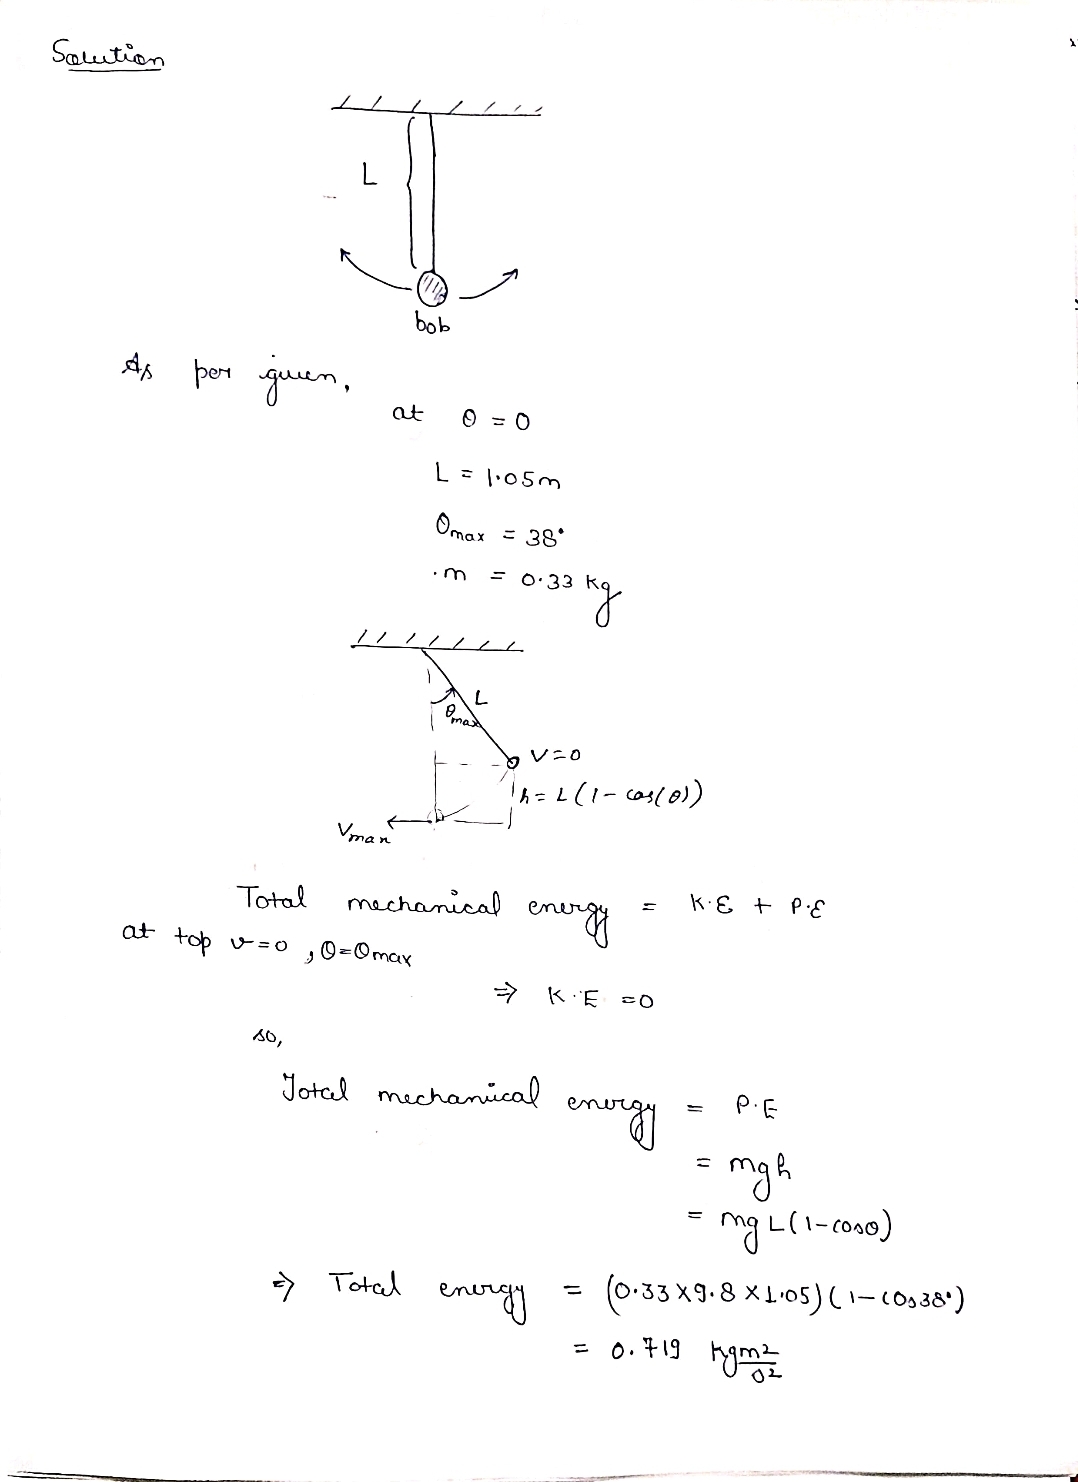 Solution
L
bob
As per given,
at θ = 0
L = 1.05m
θmax = 38°
m = 0.33 kg
L
θmax
V=0
h = L(1-cos(θ))
Vmax
Total mechanical energy = K.E + P.E
at top v=0, θ=θmax
⇒ K.E =0
so,
Total mechanical energy = P.E
= mgh
= mg L(1-cosθ)
⇒ Total energy = (0.33 x 9.8 x 1.05)(1-cos38°)
= 0.719 kgm2/s2